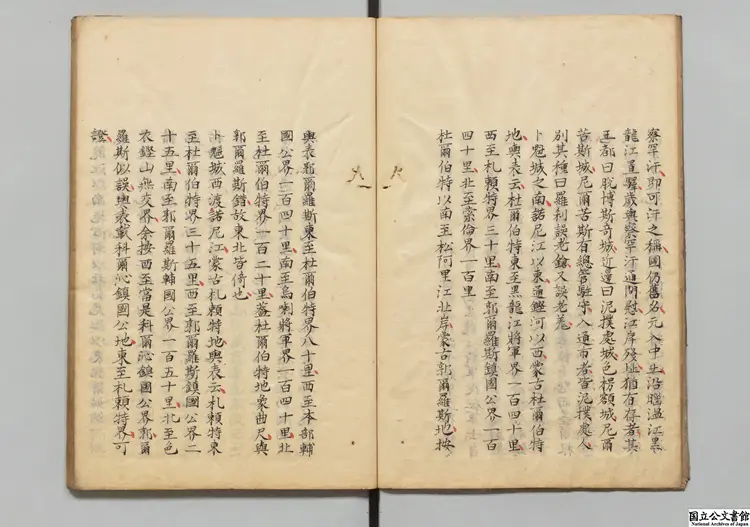 察罕汗即可汗之稱國仍舊名元入中土沿臈溫江黑
龍江置驛歲與察罕汗通問慰江岸殘址猶有存者其
王都曰脫博斯奇城近邊曰泥撲處城色楞額城尼爾
苦斯城尼爾苦斯有總管駐守入道市者皆泥撲處人
別其種曰羅利誤老鎗又誤老羌
卜魁城之南諾尼江以東通鏗河以西蒙古杜爾伯特
地輿表云杜爾伯特東至黑龍江將軍界一百四十里
西至札賴特界三十里南至郭爾羅斯鎮國公界一百
四十里北至索倫界一百里
杜爾伯特以南至松阿里江北岸蒙古郭爾羅斯地按
輿表郭爾羅斯東至杜爾伯特界八十里西至本部輔
國公界一百四十里南至烏喇將軍界一百四十里北
至杜爾伯特界一百二十里蓋杜爾伯特地象曲尺與
郭爾羅斯錯故東北皆倚也
卜魁城西渡諾尼江蒙古札賴特地輿表云札賴特東
至杜爾伯特界三十五里西至郭爾羅斯鎮國公界二
十五里南至郭爾羅斯輔國公界一百五十里北至色
衣鏗山無交界余按西至當是科爾沁鎮國公界郭爾
羅斯似誤輿表載科爾沁鎮國公地東至札賴特界可
證
国立公文書館
National Archives of Japan